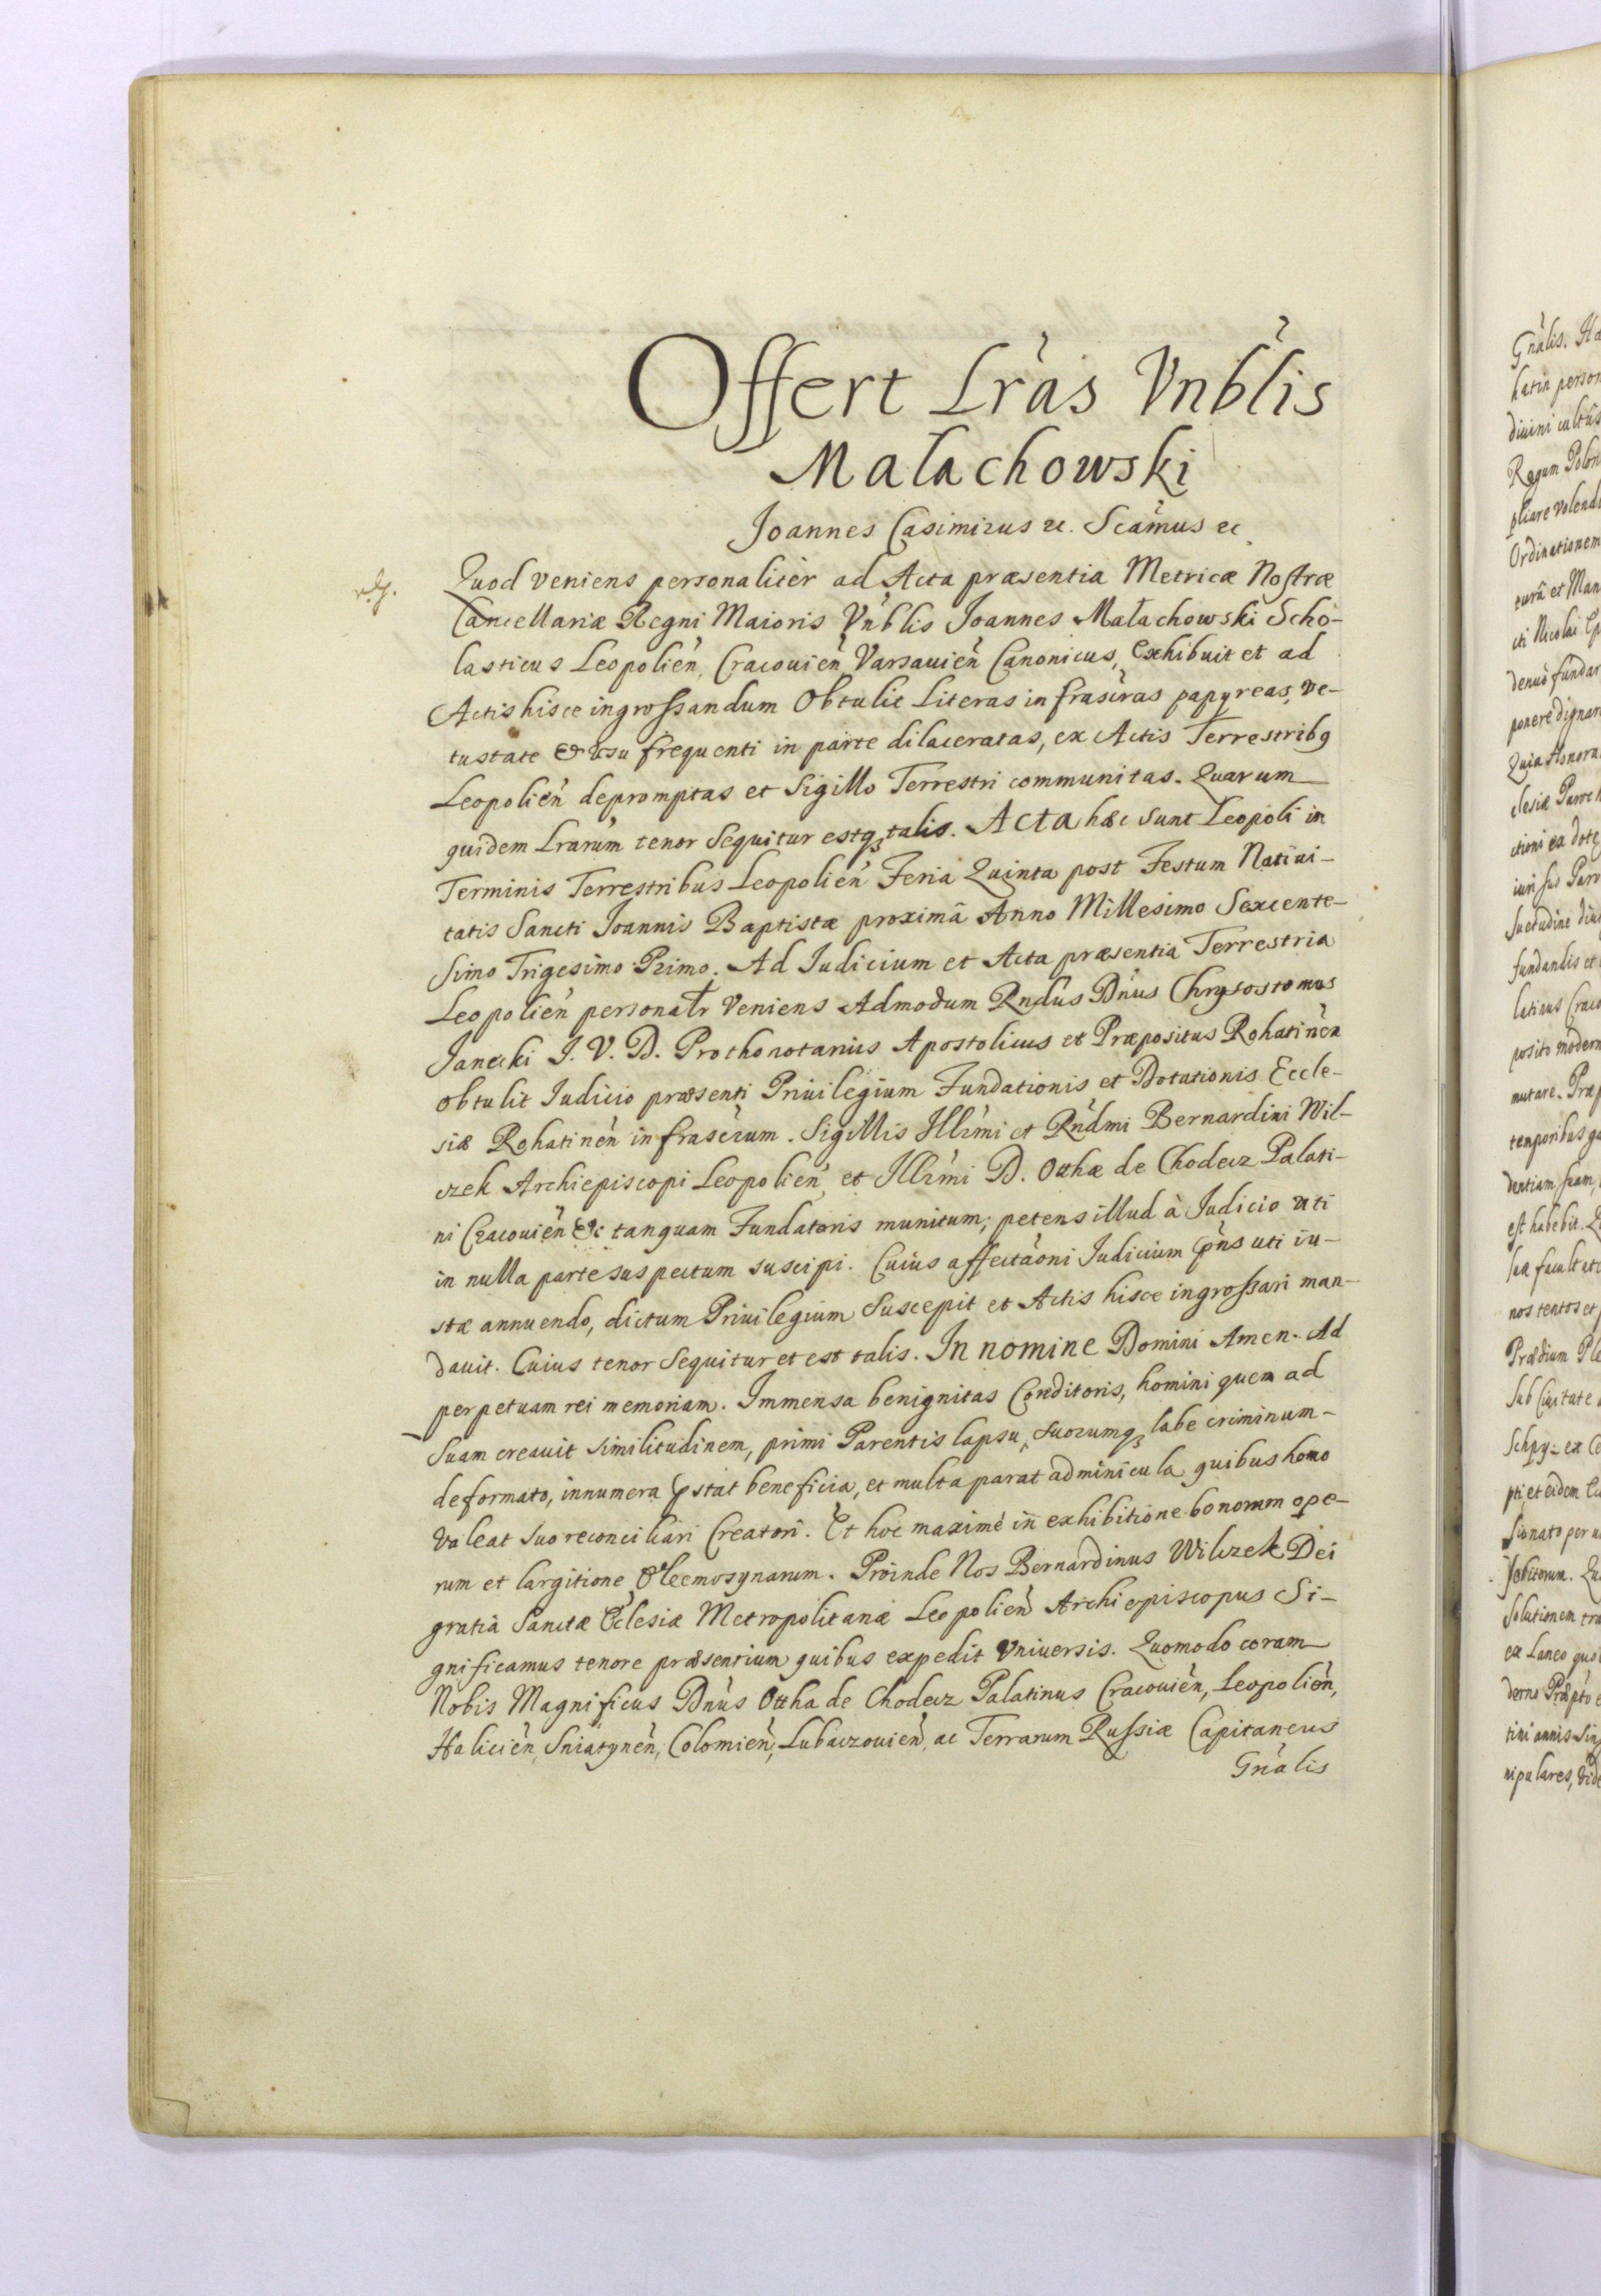 Offert Lr̃as Vnb̃lis
Małachowski
Joannes Casimirus &c. Scãmus &c.
Quod veniens personalitèr ad Acta præsentia Metricæ Nostræ
Cancellariæ Regni Maioris Vnb̃lis Joannes Małachowski Scho-
lasticus Leopolień, Cracovień, Varsavień Canonicus, Exhibuit et ad
Actis hisce ingrossandum Obtulit Literas infrascr̃as papyreas, ve-
tustate & usu frequenti in parte dilaceratas, ex Actis Terrestribꝰ
Leopolień depromptas et Sigillo Terrestri communitas. Quarum
quidem Lrãrum tenor Sequitur estqꝫ talis. Acta hæc sunt Leopoli in
Terminis Terrestribus Leopolień Feria Quinta post Festum Nativi-
tatis Sancti Joannis Baptistæ proximâ Anno Millesimo Sexcente-
simo Trigesimo Primo. Ad Iudicium et Acta præsentia Terrestria
Leopolień personałr veniens Admodum Rndũs Dñus Chrysostomus
Janecki J. V. D. Prothonotarius Apostolicus et Præpositus Rohatinẽn
obtulit Iudicio præsenti Privilegium Fundationis et Dotationis Eccle-
siæ Rohatinẽn infrascr̃um. Sigillis Illr̃mi et Rñdmi Bernardini Wil-
czek Archiepiscopi Leopolień, et Illr̃mi D. Otthæ de Chodecz Palati-
ni Cracovień &c tanquam Fundatoris munitum; petens illud à Iudicio uti
in nulla parte suspectum suscipi. Cuius affectãoni Iudicium p̃ns uti iu-
stæ annuendo, dictum Privilegium Suscepit et Actis hisce ingrossari man-
davit. Cuius tenor Sequitur et est talis. In nomine Domini Amen. Ad
perpetuam rei memoriam. Immensa benignitas Conditoris, homini quem ad
Suam creavit similitudinem, primi Parentis lapsu, suorumqꝫ labe criminum-
deformato, innumera p̃stat beneficia, et multa parat adminicula quibus homo
valeat suo reconciliari Creatori. Et hoc maximè in exhibitione bonorum ope-
rum et largitione Eleemosynarum. Proinde Nos Bernardinus Wilczek Dei
gratiâ Sanctæ Ec̃lesiæ Metropolitanæ Leopolień Archiepiscopus Si-
gnificamus tenore præsentium quibus expedit Vniversis. Quomodo coram
Nobis Magnificus Dñus Ottha de Chodecz Palatinus Cracovień, Leopolień,
Halicień, Sniatynẽn, Colomień, Lubaczovień, ac Terrarum Russiæ Capitaneus
Gñalis